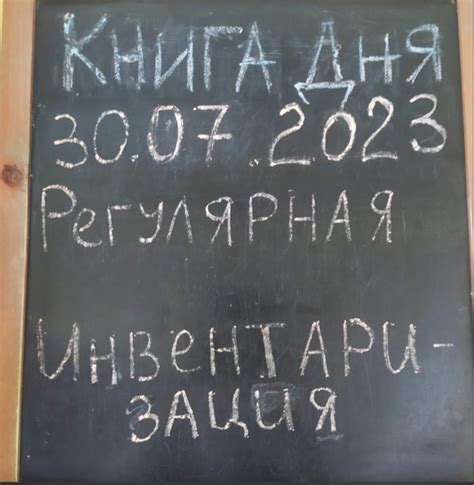 Книга дня
30.07.2023
Регулярная
Инвентари-
зация